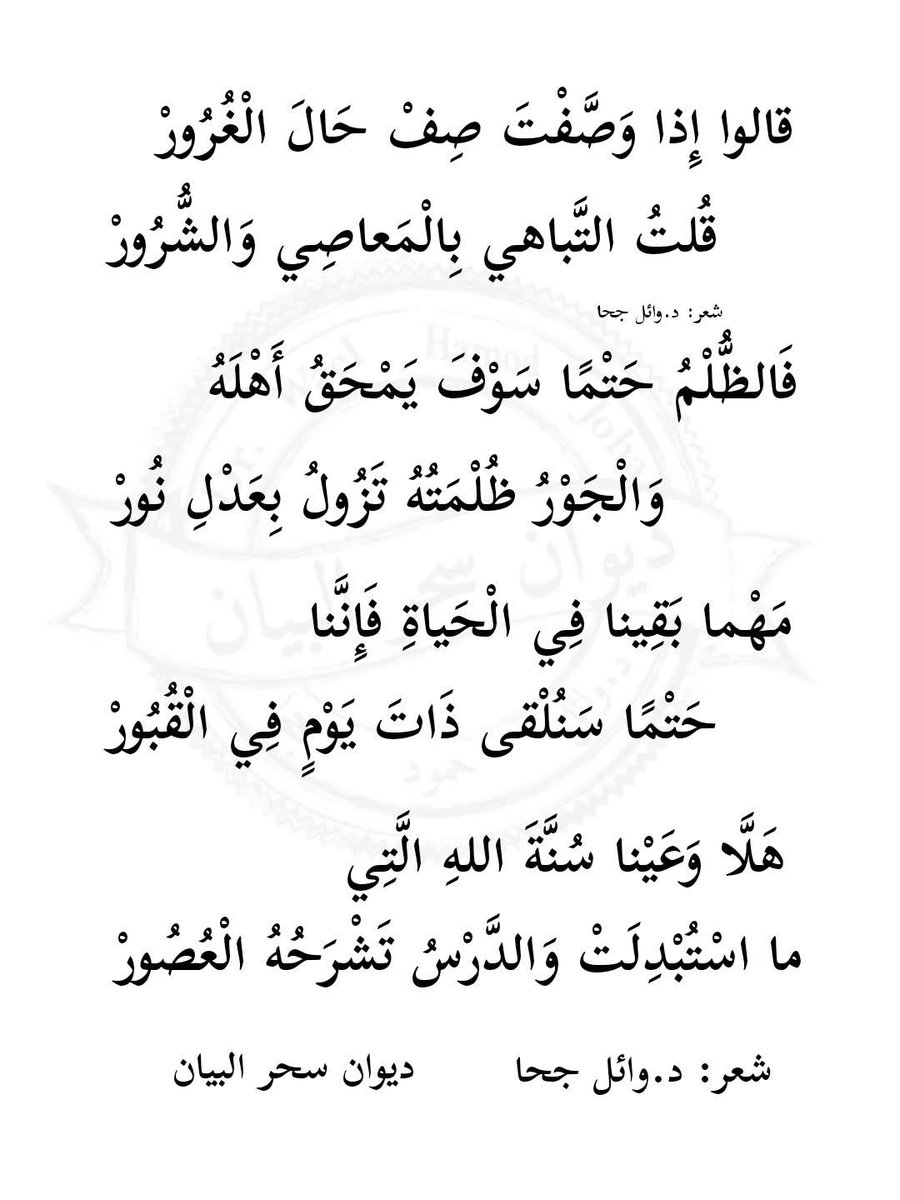 قالوا إِذا وَصَّفْتَ صِفْ حَالَ الْغُرُورْ
قُلتُ التَّباهي بِالْمَعاصِي وَالشُّرُورْ
شعر: د.وائل جحا
فَالظُّلْمُ حَتْمًا سَوْفَ يَمْحَقُ أَهْلَهُ
وَالْجَوْرُ ظُلْمَتُهُ تَزُولُ بِعَدْلِ نُورْ
مَهْما بَقِينا فِي الْحَياةِ فَإِنَّنا
حَتْمًا سَنُلْقى ذَاتَ يَوْمٍ فِي الْقُبُورْ
هَلَّا وَعَيْنا سُنَّةَ اللهِ الَّتِي
ما اسْتُبْدِلَتْ وَالدَّرْسُ تَشْرَحُهُ الْعُصُورْ
شعر: د.وائل جحا ديوان سحر البيان
Hamod
ديوان سحر البيان
حمود